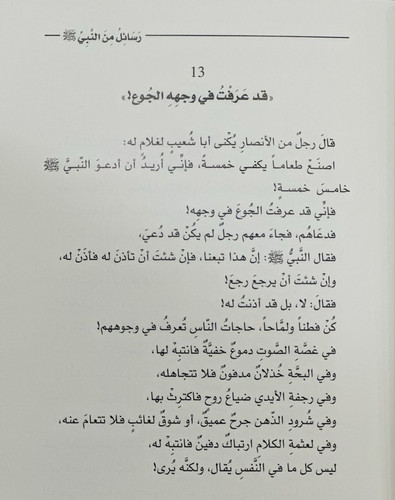 رَسَائِلُ مِنَ النَّبِيِّ ﷺ
13
«قد عَرَفْتُ في وجهِهِ الجُوع!»
قالَ رجلٌ من الأنصارِ يُكْنى أبا شُعيبٍ لغلامٍ له:
اصنَعْ طعاماً يكفي خمسةً، فإنِّي أريدُ أن أدعوَ النَّبيَّ ﷺ
خامسَ خمسةٍ!
فإنِّي قد عرفتُ الجُوعَ في وجهِه!
فدعَاهُم، فجاءَ معهم رجلٌ لم يكُنْ قد دُعيَ،
فقال النَّبيُّ ﷺ: إنَّ هذا تبعنا، فإن شئتَ أنْ تأذنَ له فأذَنْ له،
وإنْ شئتَ أنْ يرجعَ رجعَ!
فقالَ: لا، بل قد أذنتُ له!
كُنْ فطناً ولمَّاحاً، حاجاتُ النَّاسِ تُعرفُ في وجوههم!
في غصَّةِ الصَّوتِ دموعٌ خفيَّةٌ فانتبِهْ لها،
وفي البحَّةِ خُذلانٌ مدفونٌ فلا تتجاهله،
وفي رجفةِ الأيدي ضياعُ روحٍ فاكترِثْ بها،
وفي شُرودِ الذّهنِ جرحٌ عميقٌ، أو شوقٌ لغائبٍ فلا تتعامَ عنه،
وفي لعثمةِ الكلامِ ارتباكٌ دفينٌ فانتبِهْ له،
ليس كل ما في النَّفسِ يُقال، ولكنَّه يُرى!